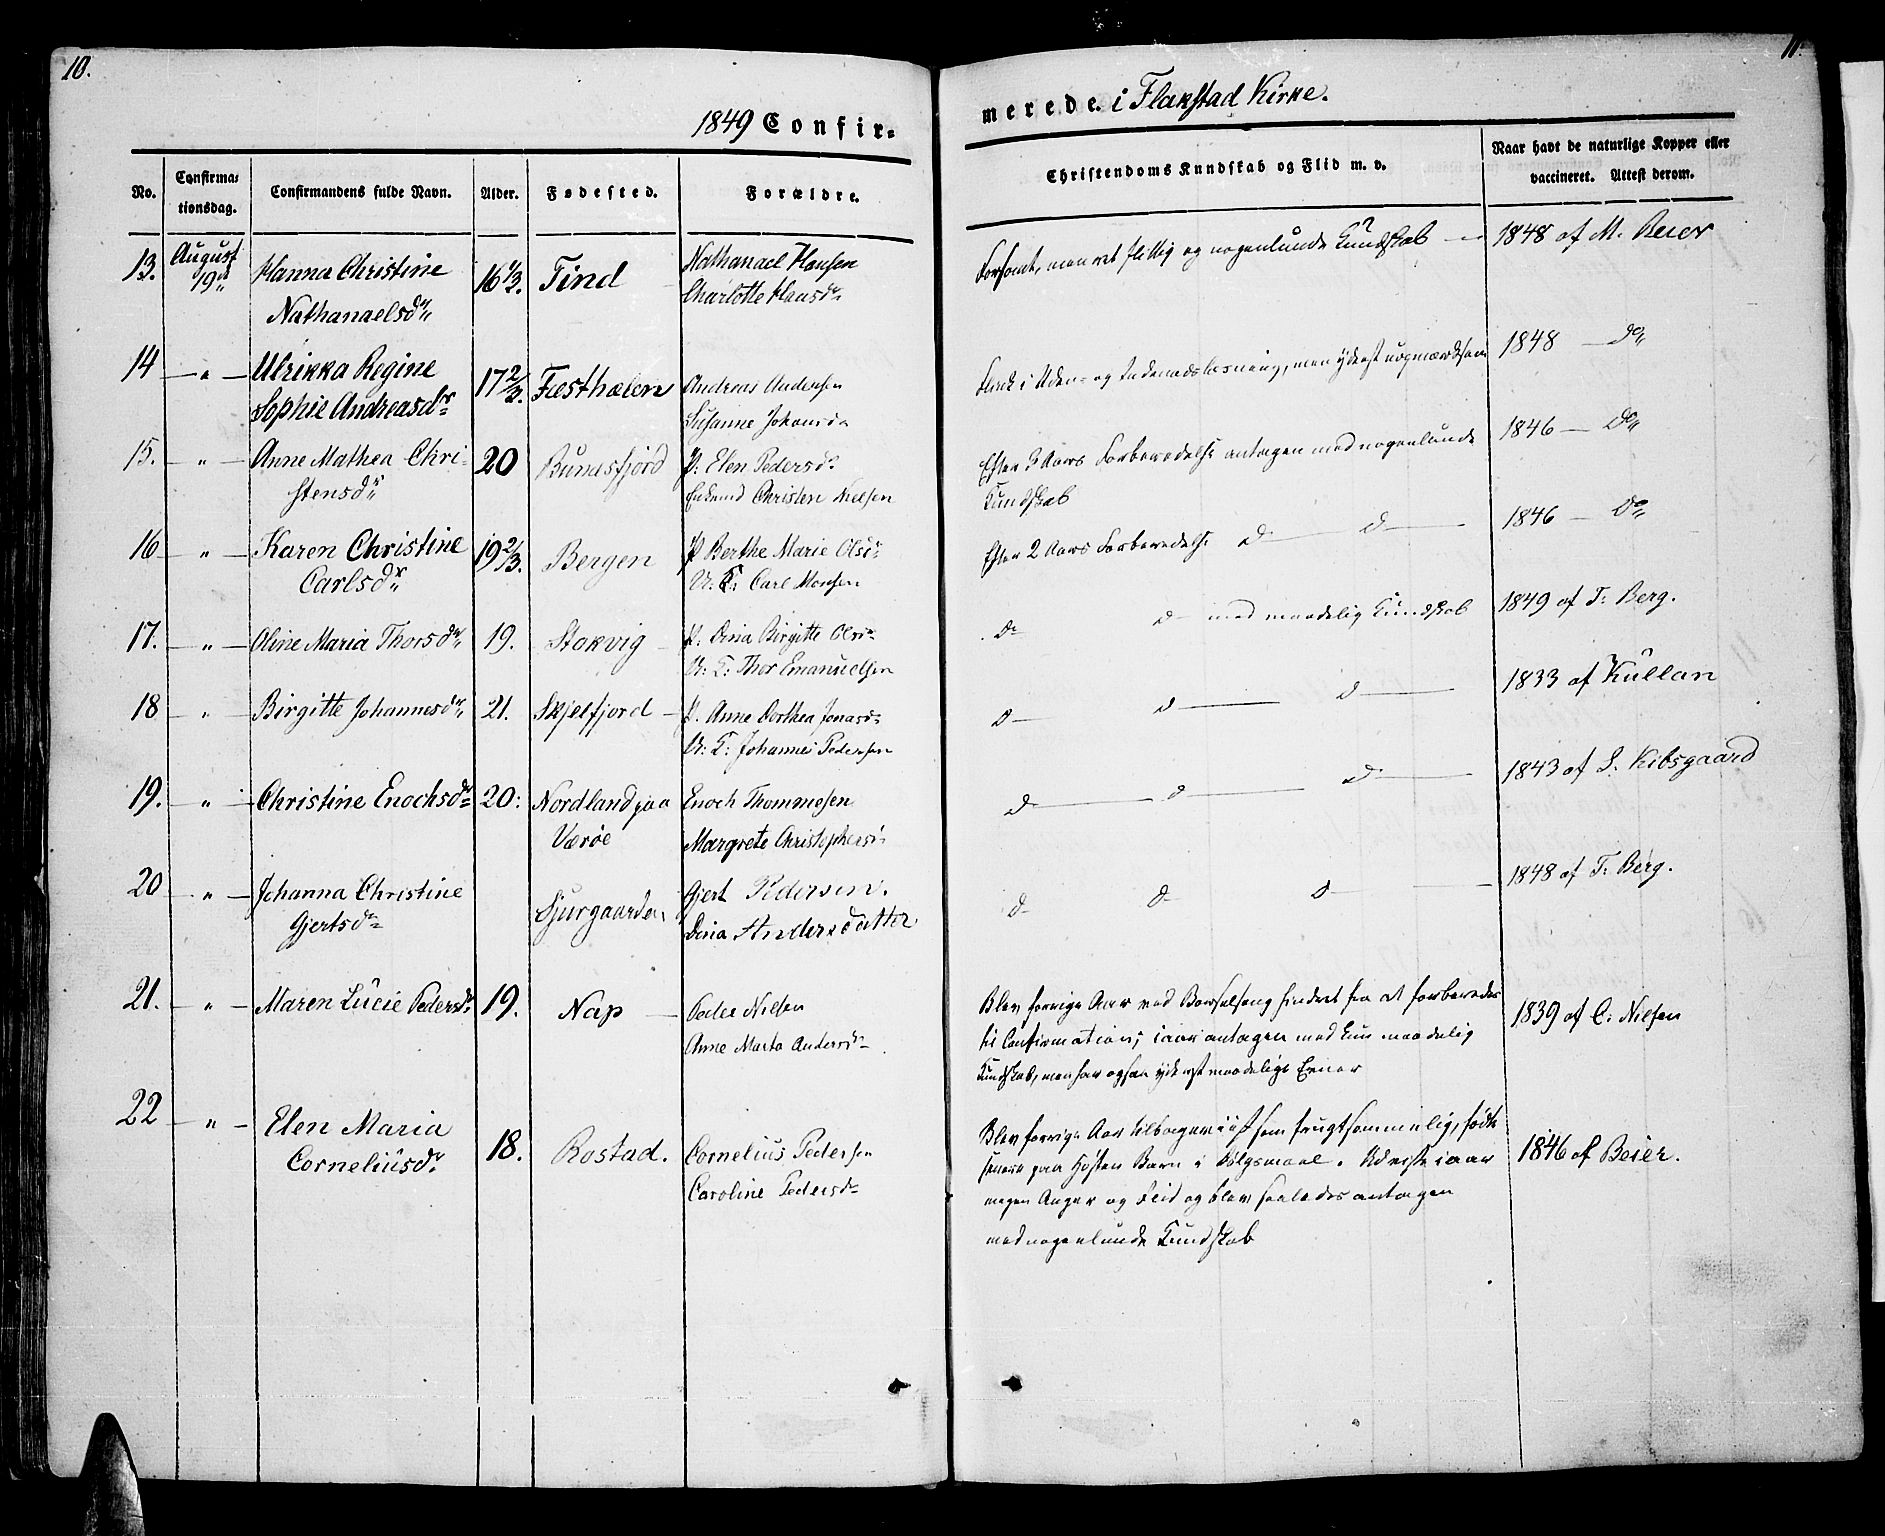 10.
11.
1849 Confir-
merede. i Flakstad Kirke.
No.
Confirma-
tionsdag.
Confirmandens fulde Navn.
Alder.
Fødested.
Forældre.
Christendoms Kundskab og Flid m. v.
Naar havt de naturlige Kopper eller
vaccineret. Attest derom.
13. August Hanna Christine 16 1/3. Tind Nathanael Hansen
19de Nathanaelsdr Charlotte Hansdr
Forsømt, men ret flittig og nogenlunde Kundskab 1848 af M. Beier
14 — " — Ulrikka Regine 17 2/3. Festhælen Andreas Andersen
Sophie Andreasdr Susanne Johansdr
Flink i Uden- og Indenadslæsning, men yderst uopmærksom 1848 — do
15. — " — Anne Mathea Chri- 20 Bunesfjord P. Elen Pedersdr
stensdr Christen Nielsen
Efter 3 Aars Forberedelse antagen med nogenlunde 1846 — do
Kundskab
16 — " — Karen Christine 19 2/3. Bergen P Berthe Marie Olsdr
Carlsdr U: K: Carl Monsen
Efter 2 Aars Forberedelse d — d — 1846 — do
17. — " — Oline Maria Thorsdr 19. Stokvig P. Dina Birgitte Olsdr
U: K: Thor Emanuelsen
do d — med maadelig Kundskab 1849 af T: Berg.
18 — " — Birgitte Johannesdr 21. Skjelfjord P. Anne Dorthea Jonasdr
U: K: Johannes Pedersen
d — d — d — 1833 af Kullan
19. — " — Christine Enochsdr 20: Nordland paa Enoch Thommesen
Værøe Margrete Christophersdr
d — d — d — 1843 af S. Kibsgaard
20 — " — Johanna Christine Sjurgaarden Gjert Pedersen.
Gjertsdr Dina Andersdatter
d — d — d — 1848 af T: Berg.
21. — " — Maren Lucie Pedersdr 19. Nap Peder Nilsen
Anne Marta Andersdr
Blev forrige Aar ved Barselseng hindret fra at forberedes 1839 af C: Nilsen
til Confirmation; iaar antagen med kun maadelig
Kundskab, men har ogsaa yderst maadelige Evner
22 — " — Elen Maria 18. Rostad. Cornelius Pedersen
Corneliusdr Caroline Pedersdr
Blev forrige Aar tilbageviist som frugtsommelig, fødte
senere paa Høsten Barn i Dølgsmaal. Udviste iaar 1846 af Beier.
megen Anger og Flid og blev saaledes antagen
med nogenlunde Kundskab